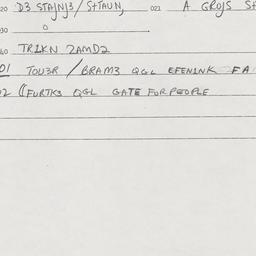 20 D3 STAJNJ3/STTAUN, 021 A GROJS
30 0
40 TR2KN 2AMD2
01 TOU3R / BRAM3 QGL EFENINK FA
02 ((FURTK3 QGL GATE FOR PEOPLE